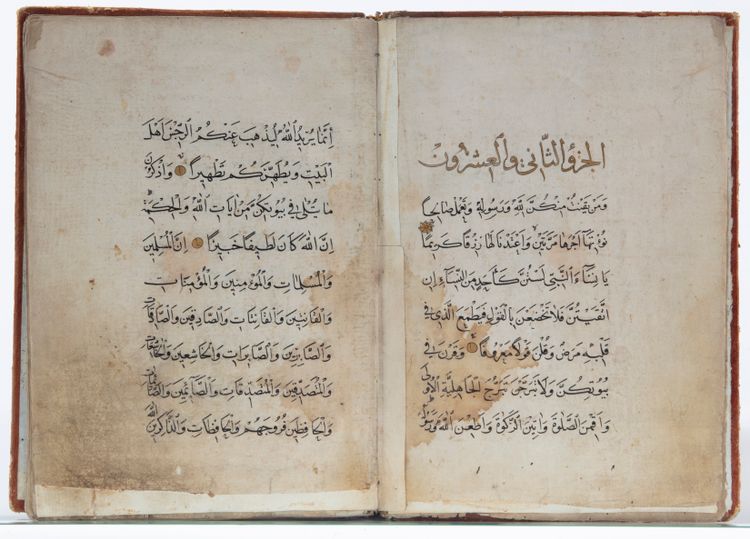 الجزؤ الثاني والعشرون
ومن يقنت منكن لله ورسوله وتعمل صالحا
نؤتها أجرها مرتين وأعتدنا لها رزقا كريما
يا نساء النبي لستن كأحد من النساء ان
اتقيتن فلا تخضعن بالقول فيطمع الذي في
قلبه مرض وقلن قولا معروفا وقرن في
بيوتكن ولا تبرجن تبرج الجاهلية الأولى
وأقمن الصلوة وآتين الزكوة وأطعن الله ورسوله
إنما يريد الله ليذهب عنكم الرجس أهل
البيت ويطهركم تطهيرا واذكرن
ما يتلى في بيوتكن من آيات الله والحكمة
ان الله كان لطيفا خبيرا ان المسلمين
والمسلمات والمؤمنين والمؤمنات
والقانتين والقانتات والصادقين والصادقات
والصابرين والصابرات والخاشعين والخاشعات
والمتصدقين والمتصدقات والصائمين والصائمات
والحافظين فروجهم والحافظات والذاكرين الله